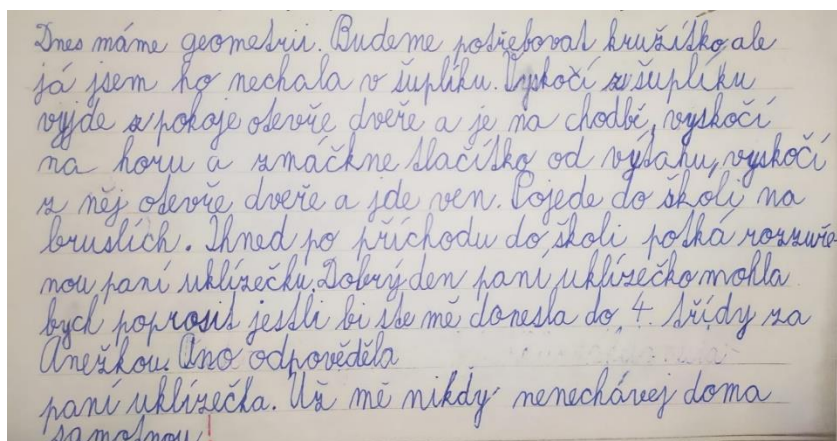 Dnes máme geometrii. Budeme potřebovat kružítko ale
já jsem ho nechala v šuplíku. Vyskočí z šuplíku
vyjde z pokoje otevře dveře a je na chodbě, vyskočí
na horu a zmáčkne tlačítko od výtahu, vyskočí
z něj otevře dveře a jde ven. Pojede do školi na
bruslích. Ihned po příchodu do školi potká rozzuře
nou paní uklízečku. Dobrý den paní uklízečko mohla
bych poprosit jestli bi ste mě donesla do 4. třídy za
Anežkou. Ano odpověděla
paní uklízečka. Už mě nikdy nenechávej doma
samotnou!